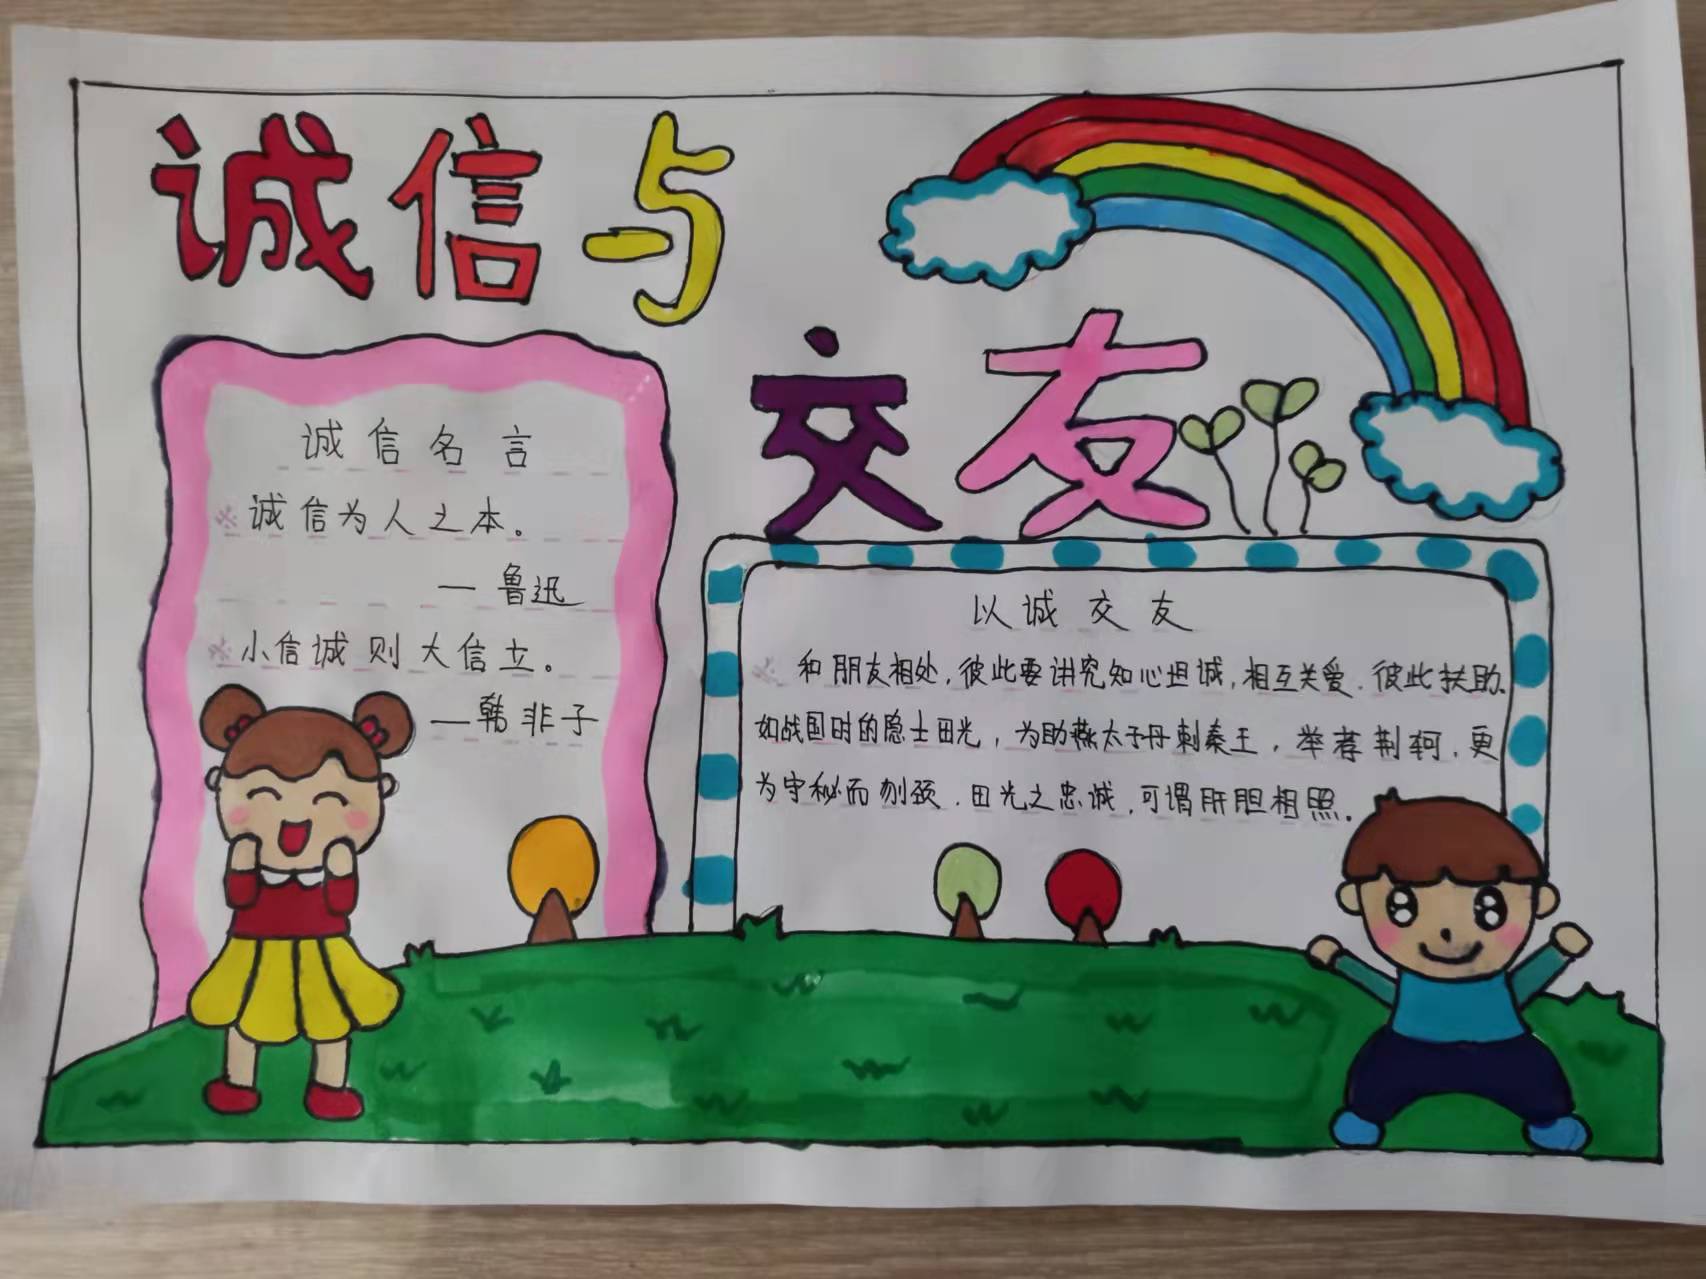 诚信与
交友
诚信名言
※诚信为人之本。
— 鲁迅
※小信诚则大信立。
— 韩非子
以诚交友
※ 和朋友相处,彼此要讲究知心坦诚,相互关爱.彼此扶助.
如战国时的隐士田光,为助燕太子丹刺秦王,举荐荆轲.更
为守秘而刎颈.田光之忠诚,可谓肝胆相照。